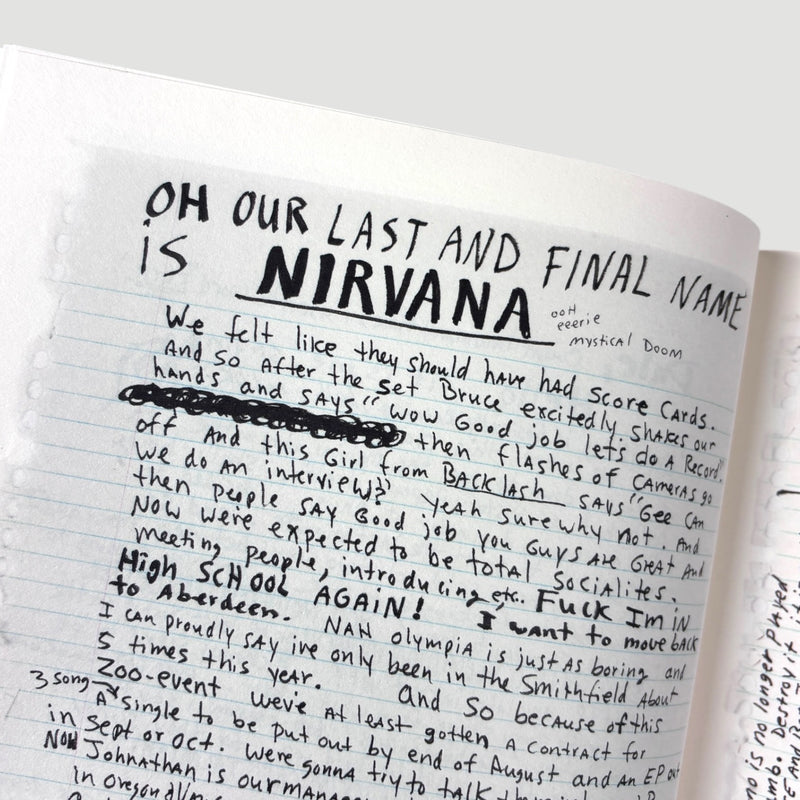 OH OUR LAST AND FINAL NAME
is NIRVANA
ooH
eeerie
mystical Doom
We felt like they should have had score cards.
And so After the set Bruce excitedly shakes our
hands and says "Wow Good job lets do A Record"
then flashes of cameras go
off And this Girl from BACKlash says "Gee can
we do An interview?" Yeah sure why not. And
then people say Good job you Guys are Great and
Now were expected to be total socialites.
meeting people, introducing etc. Fuck Im in
High SCHOOL AGAIN! I want to move back
to Aberdeen. NAH olympia is just as boring and
I can proudly say ive only been in the Smithfield About
5 times this year. And so because of this
Zoo-event weve At least gotten A contract for
3 song
A single to be put out by end of August and an EP out
in Sept or Oct. Were gonna try to talk
Now Johnathan is our
in oregon
no is no longer played
Destroy it, it i